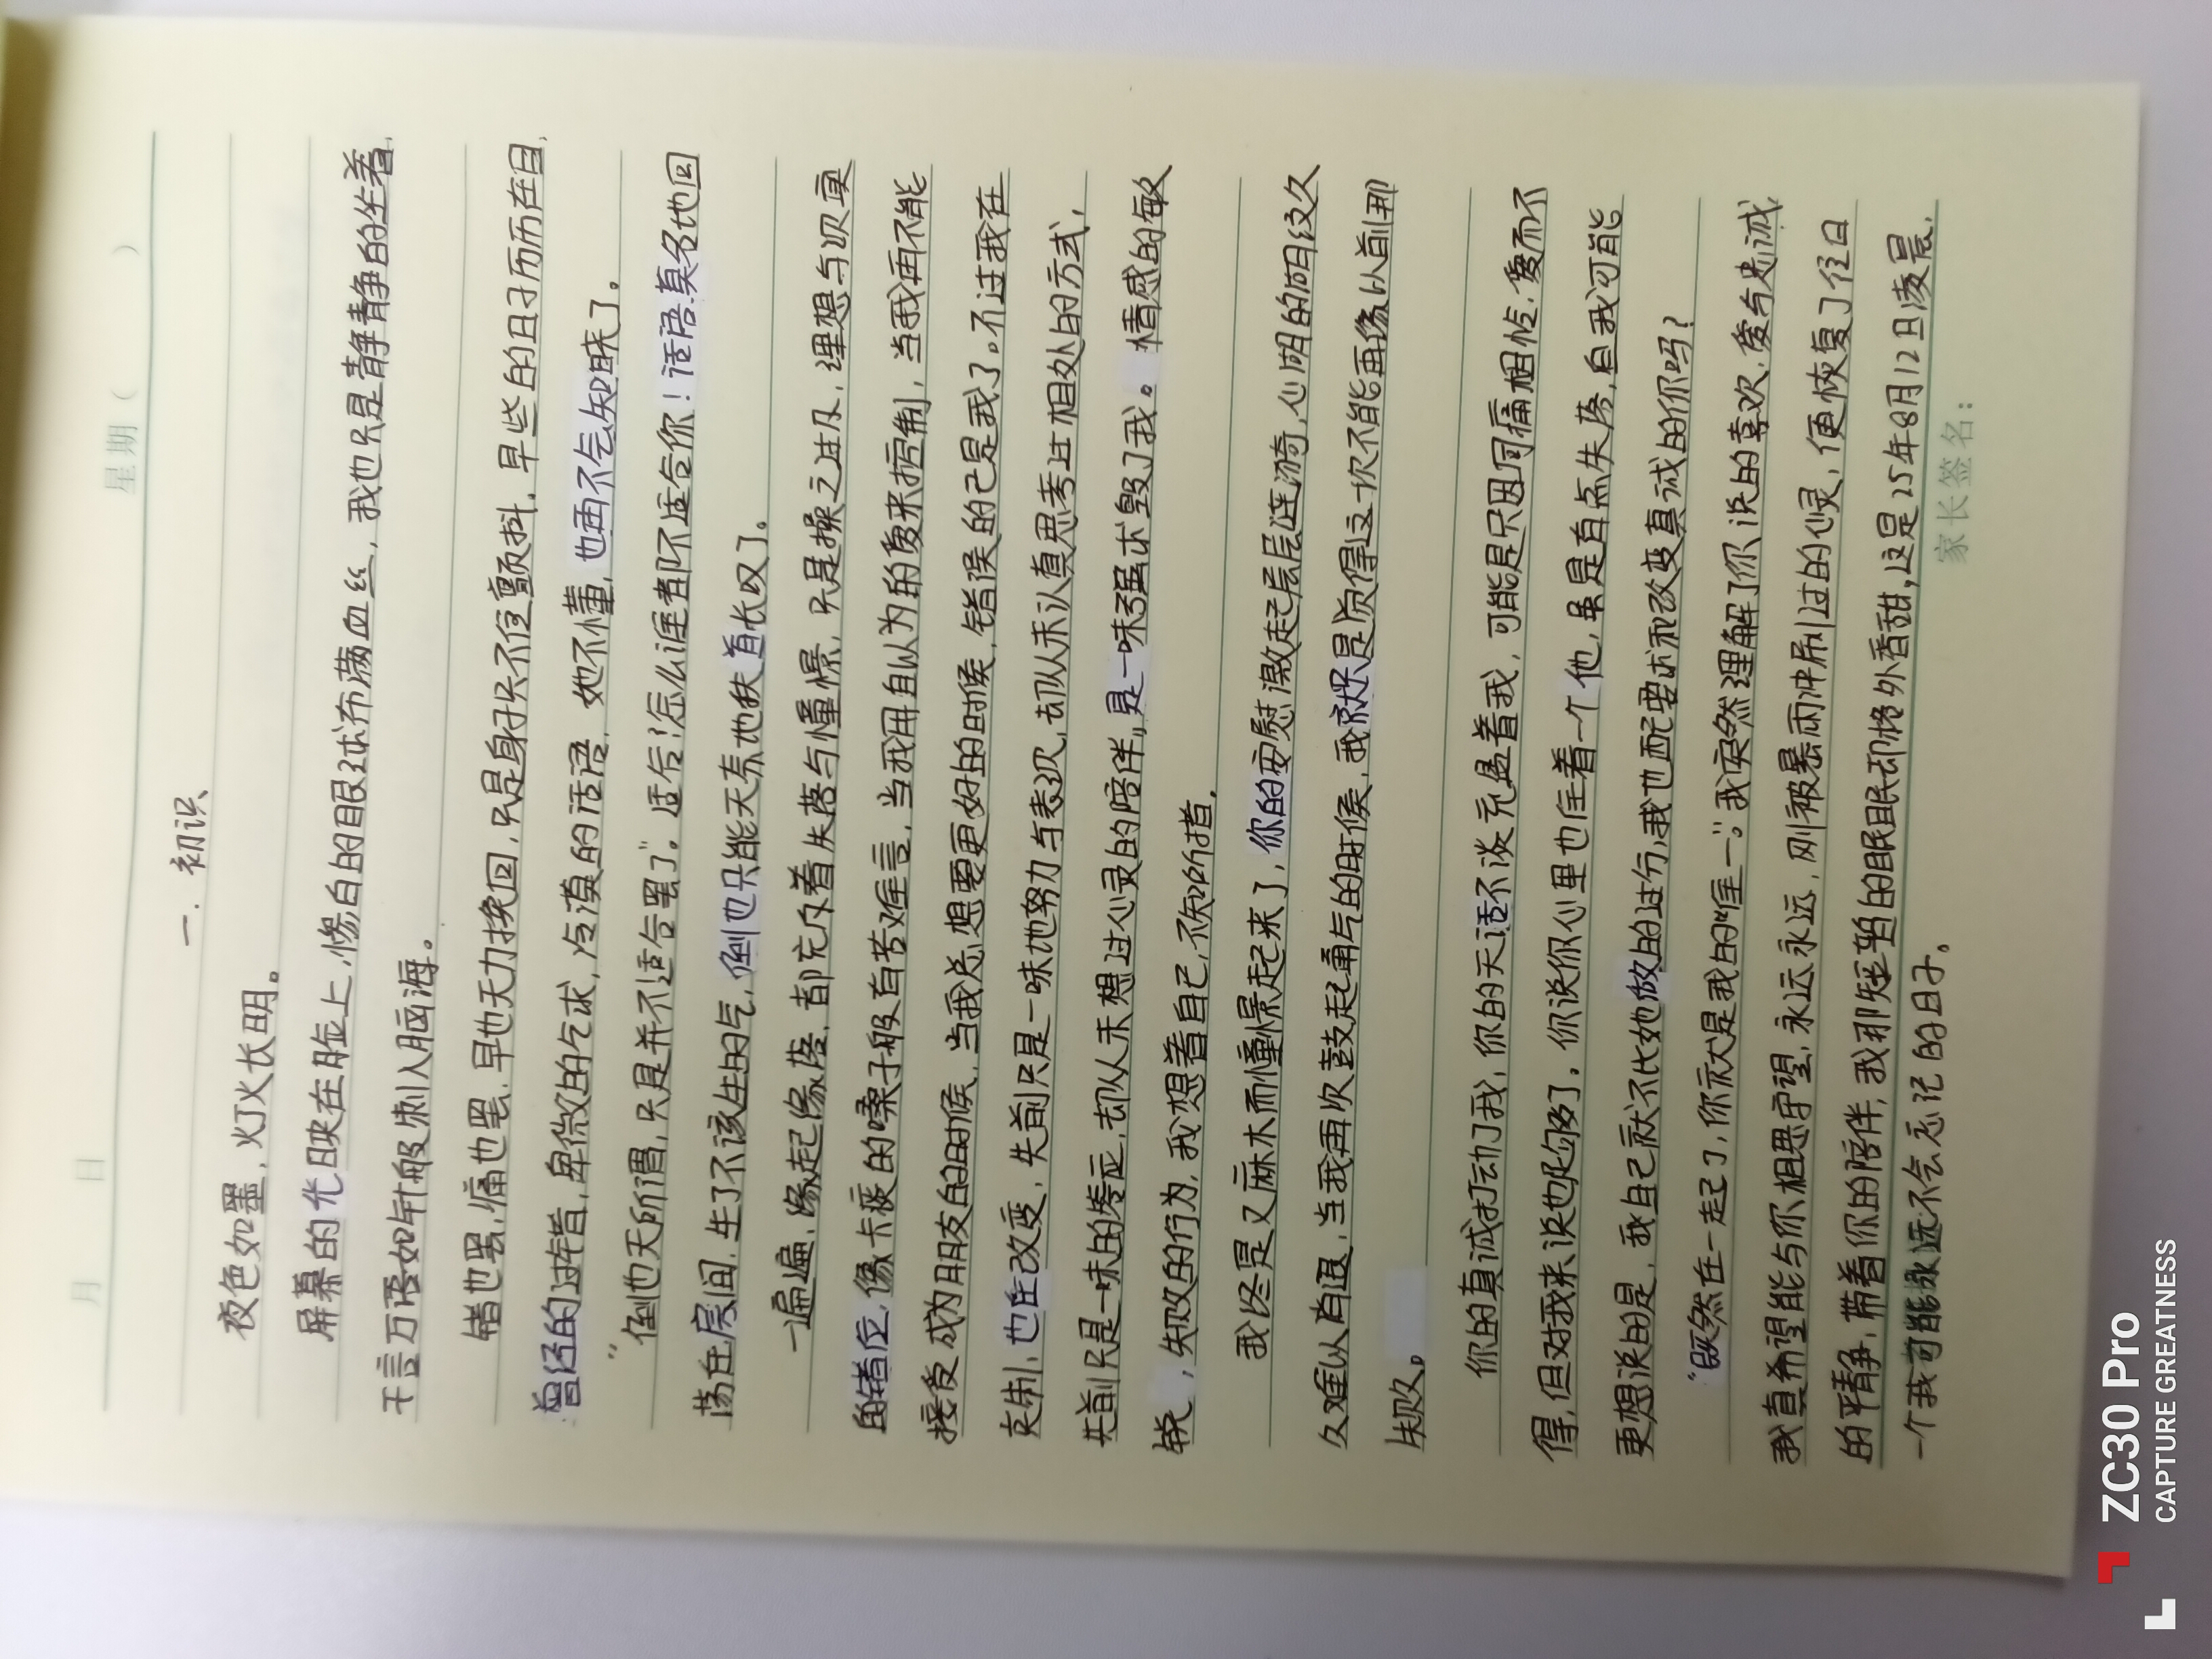 月 日 星期( )
一. 初识
夜色如墨,灯火长明。
屏幕的光映在脸上,惨白的眼球布满血丝,我也只是静静的坐着,
千言万语如针般刺入脑海。
错也罢,痛也罢,早也无力挽回,只是身子只不住颤抖,早些的日子历历在目,
曾经的过错,卑微的乞求,冷漠的话语,她不懂,也再不会知晓了。
“倒也无所谓,只是并不适合罢了”。适合!怎么谁都不适合你!话语莫名地回
荡在房间,生了不该生的气,倒也只能无奈地扶首长叹了。
一遍遍,缘起缘落,都充斥着失落与憧憬,只是操之过及,理想与次更
的错位,像卡痰的嗓子般有苦难言,当我用自认为的爱来控制,当我再不能
接受成为朋友的时候,当我总想要更好的时候,错误的已是我了。不过我在
克制,也在改变,先前只是一味地努力与表达,却从未认真思考过相处的方式,
先前只是一味的眷恋,却从未想过心灵的陪伴,是一味强求毁了我。情感的敏
锐,失败的行为,我想着自己,不知所措。
我终是又麻木而憧憬起来了,你的安慰激起层层涟漪,心明的向日纹久
久难以消退,当我再次鼓起勇气的时候,我就只是觉得这次不能再像以前那
失败。
你的真诚打动了我,你的无话不谈充盈着我,可能是只因同痛相怜,爱而不
得,但对我来说也足够了。你说你心里也住着一个他,虽是有点失落,自我可能
更想说的是,我自己就不比她做的过分,我也配要求和改变真诚的你吗?
“既然在一起了,你就是我的唯一”。我突然理解了你说的喜欢,爱与忠诚,
我真希望能与你相思守望,永远永远,刚被暴雨冲刷过的心灵,便恢复了往日
的平静,带着你的陪伴,我那短暂的眠眠却格外香甜,这是25年8月12日凌晨,
一个我可能永远不会忘记的日子。
家长签名:
ZC30 Pro
CAPTURE GREATNESS